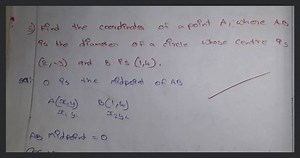 3) Find the coordinates of a point A, where AB
is the diameter of a circle whose centre is
(2,-3) and B is (1,4).
Sol: O is the midpoint of AB
A(x,y) B(1,4)
x₁ y₁ x₂ y₂
AB Midpoint = O